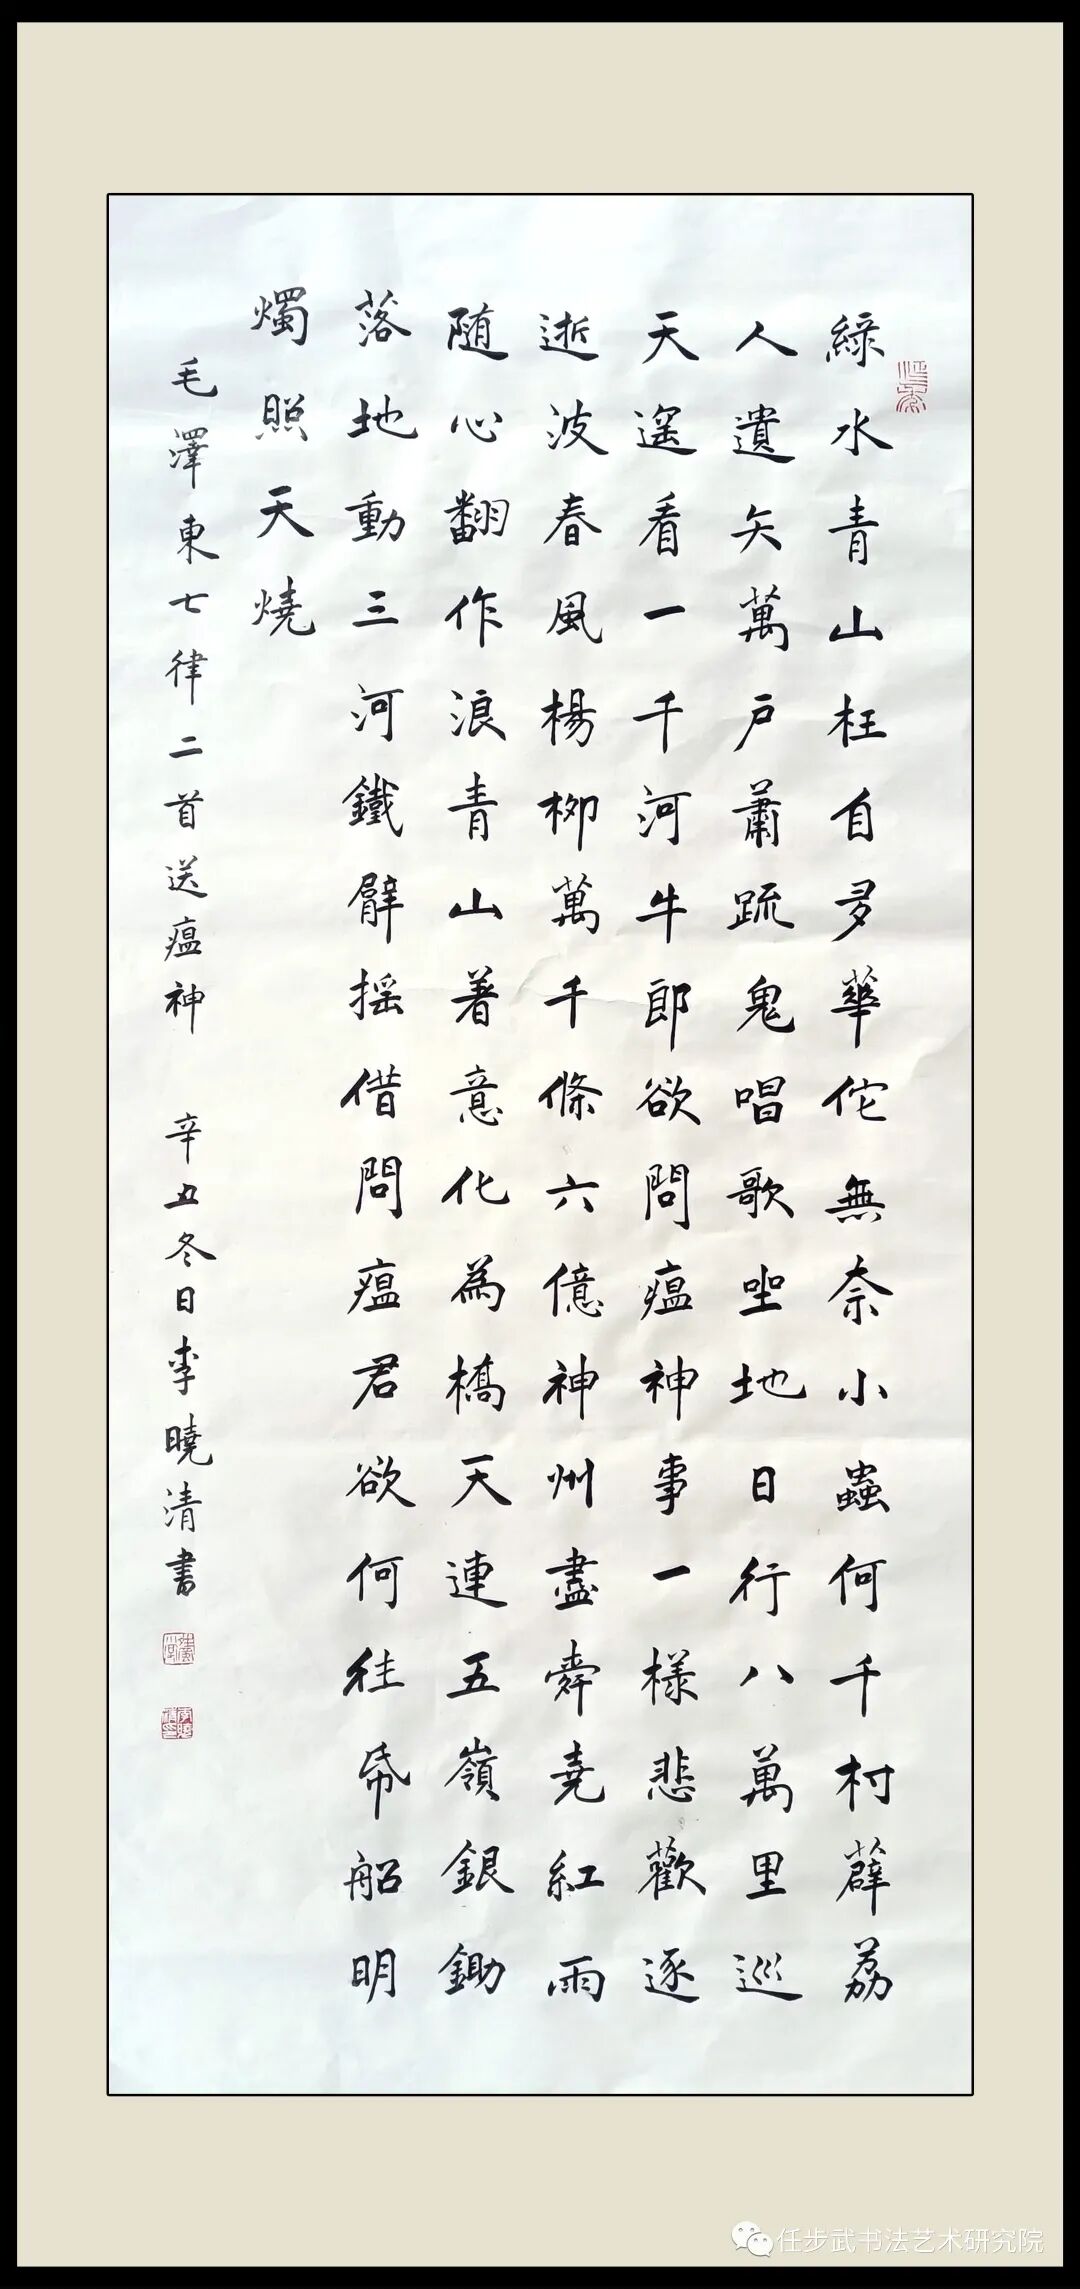 綠水青山枉自多華佗無奈小蟲何千村薜荔
人遺矢萬戶蕭疏鬼唱歌坐地日行八萬里巡
天遙看一千河牛郎欲問瘟神事一樣悲歡逐
逝波春風楊柳萬千條六億神州盡舜堯紅雨
随心翻作浪青山著意化為橋天連五嶺銀鋤
落地動三河鐵臂搖借問瘟君欲何往帋船明
燭照天燒
毛澤東七律二首送瘟神 辛丑冬日李曉清書
任步武书法艺术研究院